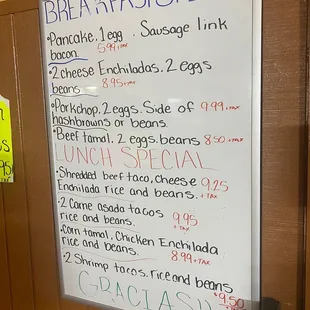 BREAKFAST
•Pancake. 1egg. Sausage link
bacon. 5.99+TAX
•2 cheese Enchiladas. 2 eggs
beans 8.95+TAX
•Porkchop. 2 eggs. Side of 9.99+TAX
hashbrowns or beans.
•Beef tamal. 2 eggs. beans 8.50+TAX
LUNCH SPECIAL
•Shredded beef taco, cheese 9.25
Enchilada rice and beans. +TAX
•2 Carne asada tacos 9.95
rice and beans. +TAX
•Corn tamal, Chicken Enchilada
rice and beans. 8.99+TAX
•2 Shrimp tacos. rice and beans
$9.50
+TAX
GRACIAS!!